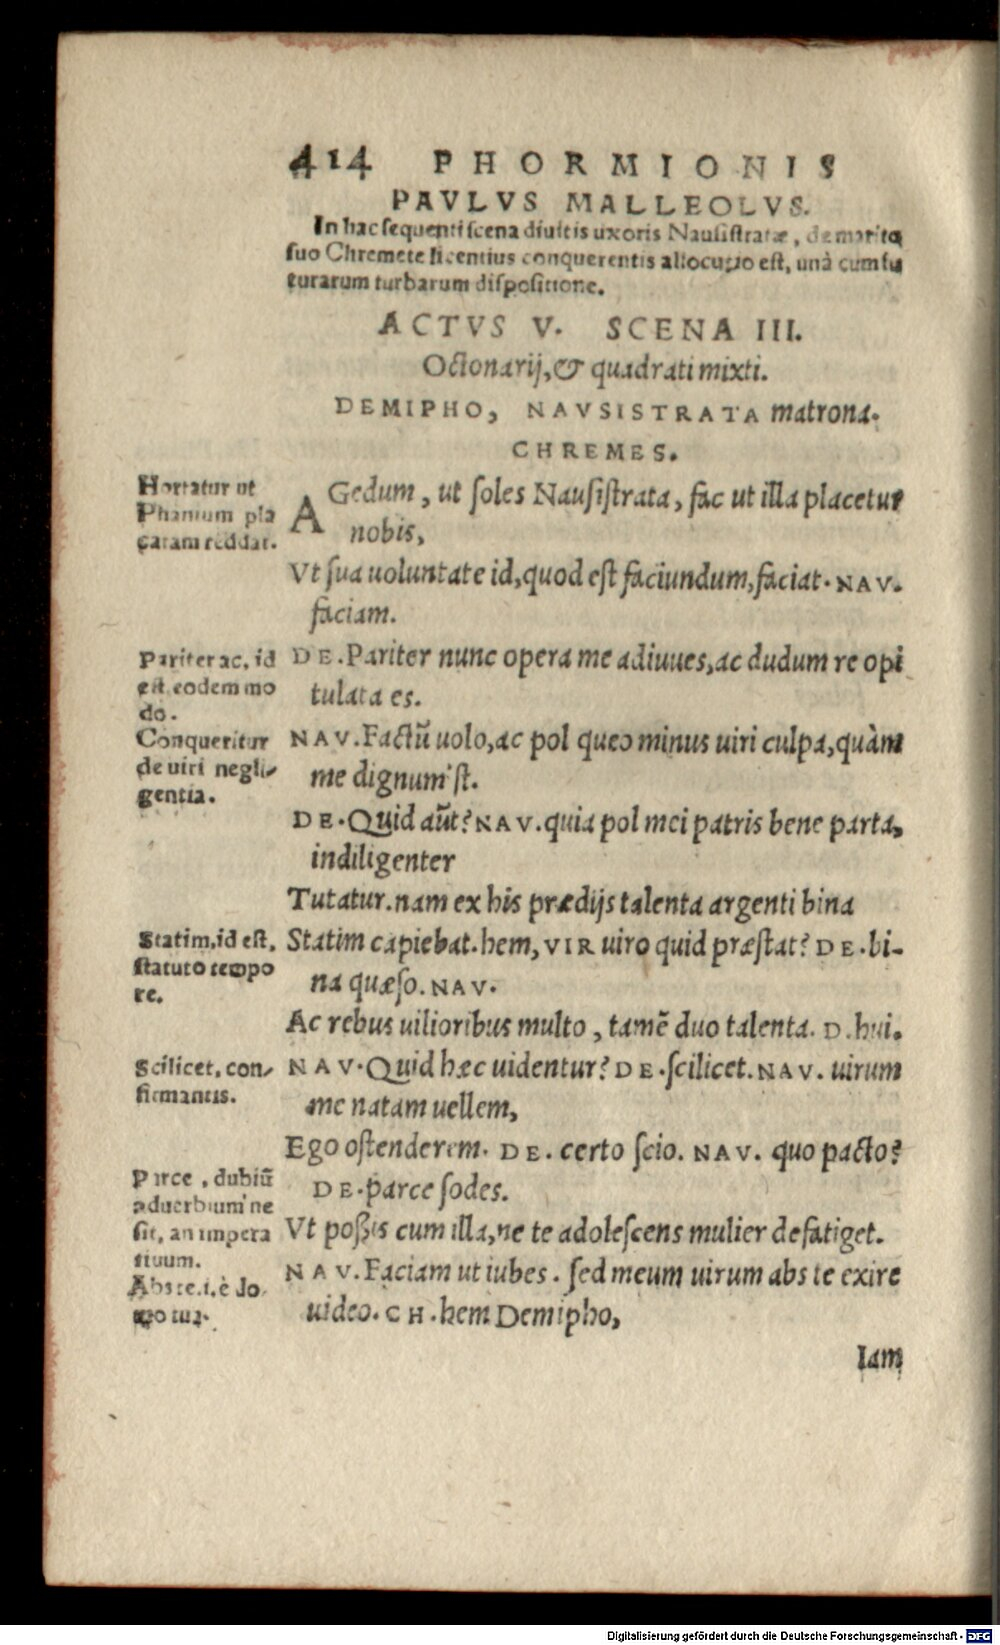 414 PHORMIONIS
PAVLVS MALLEOLVS.
In hac sequenti scena diuitis uxoris Nausistratæ, de marito
suo Chremete licentius conquerentis allocutio est, unà cum fu
turarum turbarum dispositione.
ACTVS V. SCENA III.
Octonarij, & quadrati mixti.
DEMIPHO, NAVSISTRATA matrona.
CHREMES.
Hortatur ut
Phanium pla
catam reddat.
AGedum, ut soles Nausistrata, fac ut illa placetur
nobis,
Vt sua uoluntate id, quod est faciundum, faciat. NAV.
faciam.
Pariter ac, id
est, eodem mo
do.
DE. Pariter nunc opera me adiuues, ac dudum re opi
tulata es.
Conqueritur
de uiri negli-
gentia.
NAV. Factū uolo, ac pol queo minus uiri culpa, quàm
me dignum'st.
DE. Quid aūt? NAV. quia pol mei patris bene parta,
indiligenter
Tutatur. nam ex his prædijs talenta argenti bina
Statim, id est,
statuto tempo
re.
Statim capiebat. hem, VIR uiro quid præstat? DE. bi-
na quæso. NAV.
Ac rebus uilioribus multo, tamē duo talenta. D. hui.
Scilicet, con-
firmantis.
NAV. Quid hæc uidentur? DE. scilicet. NAV. uirum
me natam uellem,
Ego ostenderem. DE. certo scio. NAV. quo pacto?
DE. parce sodes.
Parce, dubiū
aduerbium ne
sit, an impera
tiuum.
Vt poßis cum illa, ne te adolescens mulier defatiget.
Abs te .i. è do
mo tua.
NAV. Faciam ut iubes. sed meum uirum abs te exire
uideo. CH. hem Demipho,
Iam
Digitalisierung gefördert durch die Deutsche Forschungsgemeinschaft - DFG